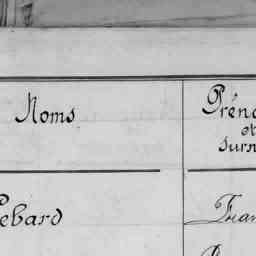 Noms
Préno
et
surn
ebard
Fran